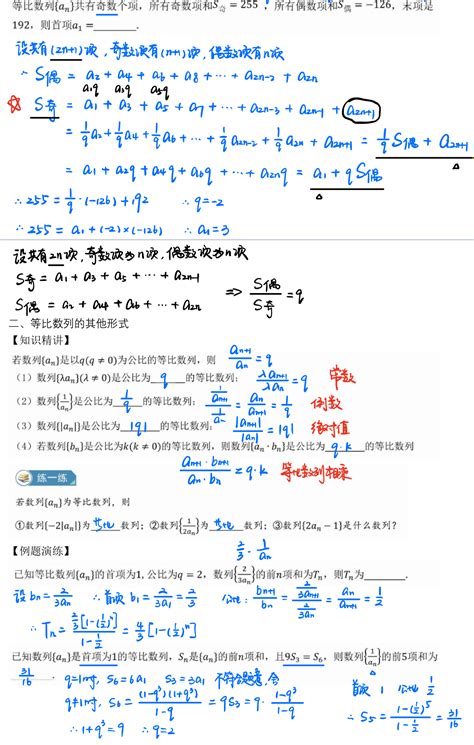 等比数列{aₙ}共有奇数个项，所有奇数项和S奇 = 255，所有偶数项和S偶 = −126，末项是
192，则首项a₁ = ______.
设共有(2n+1)项，奇数项有(n+1)项，偶数项有n项
∴ S偶 = a₂ + a₄ + a₆ + a₈ + ⋯ + a₂ₙ₋₂ + a₂ₙ
a₁q a₃q a₅q
☆ S奇 = a₁ + a₃ + a₅ + a₇ + ⋯ + a₂ₙ₋₃ + a₂ₙ₋₁ + a₂ₙ₊₁
= 1/q a₂ + 1/q a₄ + 1/q a₆ + ⋯ + 1/q a₂ₙ₋₂ + 1/q a₂ₙ + a₂ₙ₊₁ = 1/q S偶 + a₂ₙ₊₁
= a₁ + a₂q + a₄q + a₆q + ⋯ + a₂ₙq = a₁ + q S偶
∴ 255 = 1/q · (−126) + 192 ∴ q = −2
∴ 255 = a₁ + (−2) × (−126) ∴ a₁ = 3
设共有2n项，奇数项为n项，偶数项为n项
S奇 = a₁ + a₃ + a₅ + ⋯ + a₂ₙ₋₁
S偶 = a₂ + a₄ + a₆ + ⋯ + a₂ₙ ⇒ S偶/S奇 = q
二、等比数列的其他形式
【知识精讲】
若数列{aₙ}是以q(q ≠ 0)为公比的等比数列，则 aₙ₊₁/aₙ = q
（1）数列{λaₙ}(λ ≠ 0)是公比为 q 的等比数列； λaₙ₊₁/λaₙ = q 常数
（2）数列{1/aₙ}是公比为 1/q 的等比数列； (1/aₙ₊₁)/(1/aₙ) = aₙ/aₙ₊₁ = 1/q 倒数
（3）数列{|aₙ|}是公比为 |q| 的等比数列； |aₙ₊₁|/|aₙ| = |q| 绝对值
（4）若数列{bₙ}是公比为k(k ≠ 0)的等比数列，则数列{aₙ · bₙ}是公比为 q·k 的等比数列
aₙ₊₁·bₙ₊₁/aₙ·bₙ = q·k 等比数列相乘
练一练
若数列{aₙ}为等比数列，则
①数列{−2|aₙ|}为 等比 数列；②数列{1/2aₙ}为 等比 数列；③数列{2aₙ − 1}是什么数列？
【例题演练】 2/3 · 1/aₙ
已知等比数列{aₙ}的首项为1,公比为q = 2，数列{2/3aₙ}的前n项和为Tₙ，则Tₙ为______.
设bₙ = 2/3aₙ ∴ 首项 b₁ = 2/3a₁ = 2/3 公比: bₙ₊₁/bₙ = (2/3aₙ₊₁)/(2/3aₙ) = aₙ/aₙ₊₁ = 1/2
∴ Tₙ = 2/3[1−(1/2)ⁿ]/(1−1/2) = 4/3[1−(1/2)ⁿ]
已知数列{aₙ}是首项为1的等比数列，Sₙ是{aₙ}的前n项和，且9S₃ = S₆，则数列{1/aₙ}的前5项和为
31/16. q=1时, S₆ = 6a₁ S₃ = 3a₁ 不符合题意,舍 首项 1 公比 1/2
q≠1时, S₆ = (1−q³)(1+q³)/(1−q) = 9S₃ = 9·(1−q³)/(1−q) ∴ S₅ = (1−(1/2)⁵)/(1−1/2) = 31/16
∴ 1+q³ = 9 ∴ q = 2